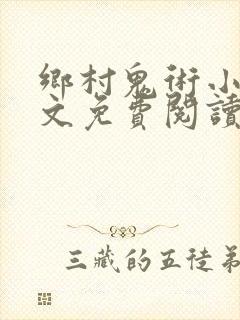 鄉村鬼術小
文免費閱讀
三藏的五徒弟